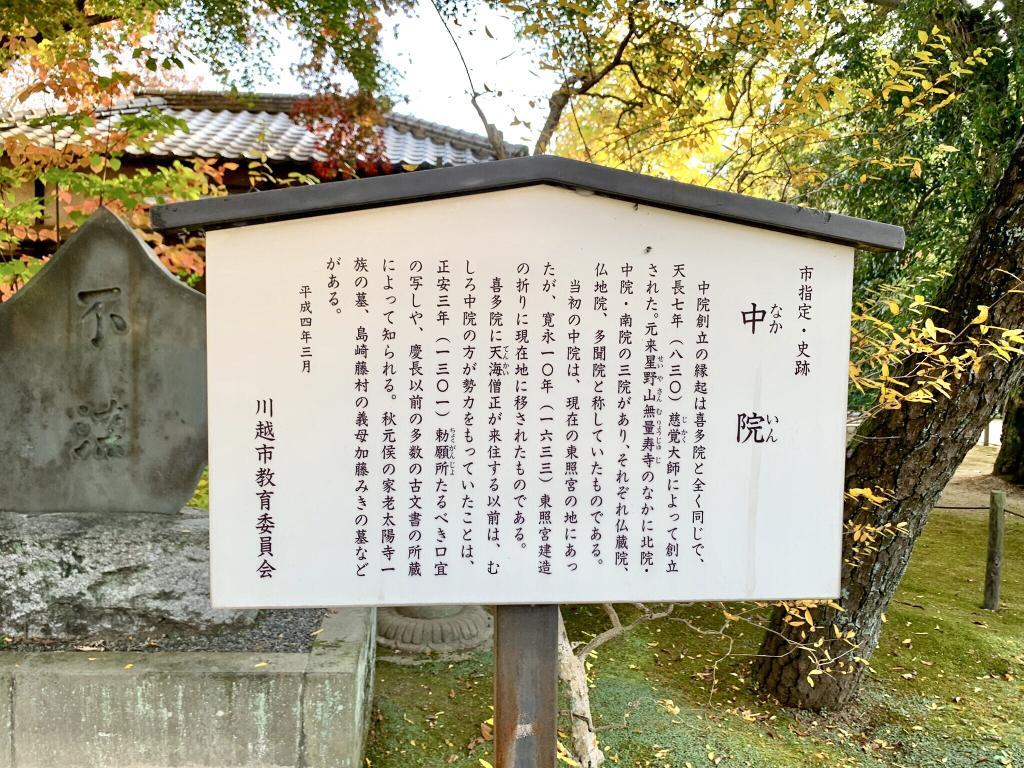 市指定・史跡
中院
なか いん
中院創立の縁起は喜多院と全く同じで、
天長七年（八三〇）慈覚大師によって創立
じかく
された。元来星野山無量寿寺のなかに北院・
せいやさん むりょうじゅじ
中院・南院の三院があり、それぞれ仏蔵院、
仏地院、多聞院と称していたものである。
当初の中院は、現在の東照宮の地にあっ
たが、寛永一〇年（一六三三）東照宮建造
の折りに現在地に移されたものである。
喜多院に天海僧正が来住する以前は、む
てんかい
しろ中院の方が勢力をもっていたことは、
正安三年（一三〇一）勅願所たるべき口宜
ちょくがんじょ
の写しや、慶長以前の多数の古文書の所蔵
によって知られる。秋元侯の家老太陽寺一
族の墓、島崎藤村の義母加藤みきの墓など
がある。
平成四年三月
川越市教育委員会
不染